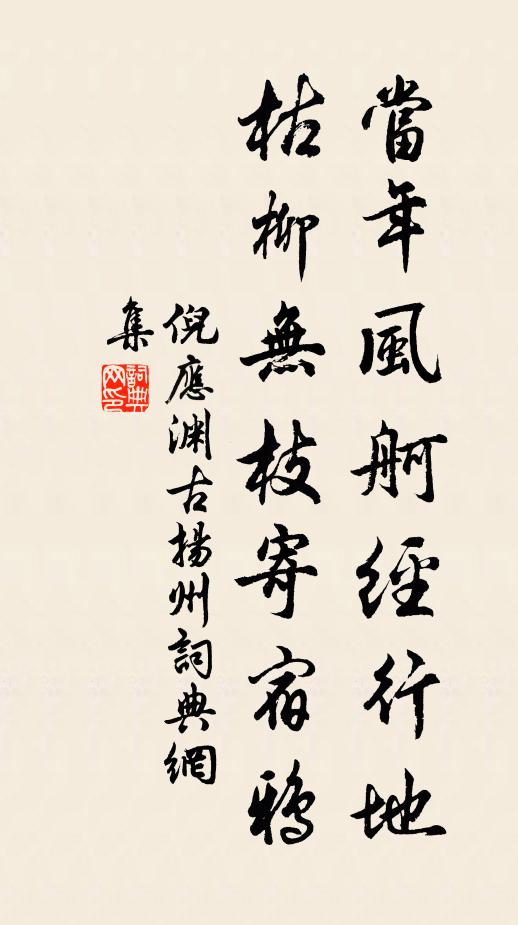 當年風舸經行地
枯柳無枝寄宿鴉
倪應渊古揚州詞典網
集
詞典网印